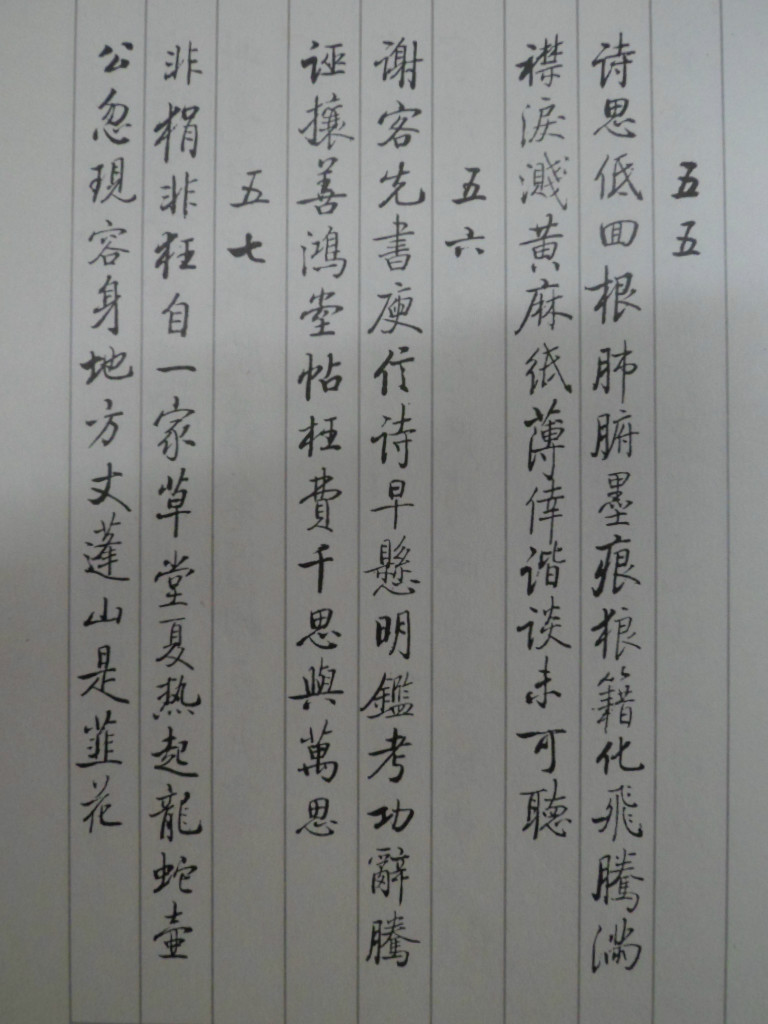 五五
诗思低囬根肺腑墨痕狼籍化飛騰满
襟淚濺黄麻纸薄倖谐谈未可聴
五六
谢客先書庾信诗早懸明鑑考功辭騰
诬攘善鴻堂帖枉費千思與萬思
五七
非狷非狂自一家草堂夏热起龍蛇壶
公忽現容身地方丈蓬山是韮花